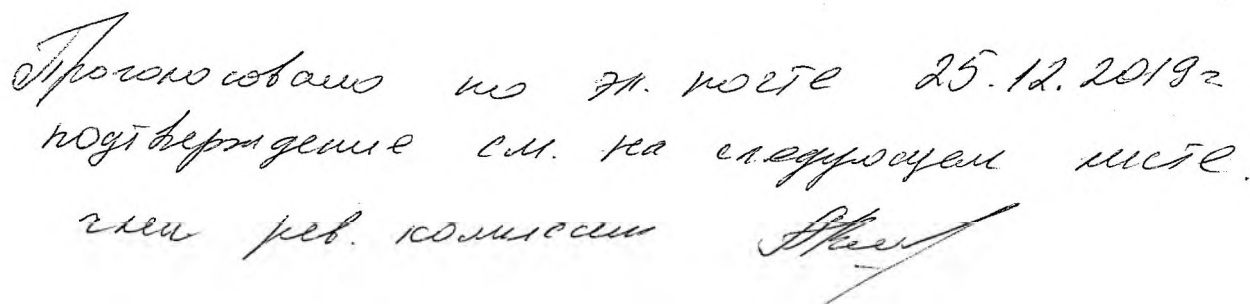 Проголосовано по эл. почте 25.12.2019г
подтверждение см. на следующем листе.
член рев. комиссии